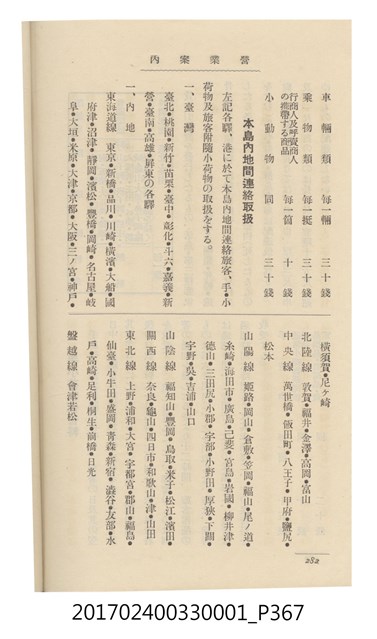 營業案內
車輛類 每一輛 三十錢
乘物類 每一挺 三十錢
行商人及呼賣商人の攜帶する商品 每一箇 十錢
小動物 同 三十錢
本島內地間連絡取扱
左記各驛、港に於て本島內地間連絡旅客、手・小
荷物及旅客附隨小荷物の取扱をする。
一、臺灣
臺北・桃園・新竹・苗栗・臺中・彰化・斗六・嘉義・新
營・臺南・高雄・屏東の各驛
一、內地
東海道線 東京・新橋・品川・川崎・橫濱・大船・國
府津・沼津・靜岡・濱松・豐橋・岡崎・名古屋・岐
阜・大垣・米原・大津・京都・大阪・三ノ宮・神戶・
橫須賀・尼ヶ崎
北陸線 敦賀・福井・金澤・高岡・富山
中央線 萬世橋・飯田町・八王子・甲府・鹽尻・
松本
山陽線 姬路・岡山・倉敷・笠岡・福山・尾ノ道・
糸崎・海田市・廣島・己斐・宮島・岩國・柳井津・
德山・三田尻・小郡・宇部・小野田・厚狹・下關
宇野・吳・吉浦・山口
山陰線 福知山・豐岡・鳥取・米子・松江・濱田・
關西線 奈良・龜山・四日市・和歌山・津・山田
東北線 上野・浦和・大宮・宇都宮・郡山・福島・
仙臺・小牛田・盛岡・青森・新宿・澁谷・友部・水
戶・高崎・足利・桐生・前橋・日光
磐越線 會津若松
282
201702400330001_P367